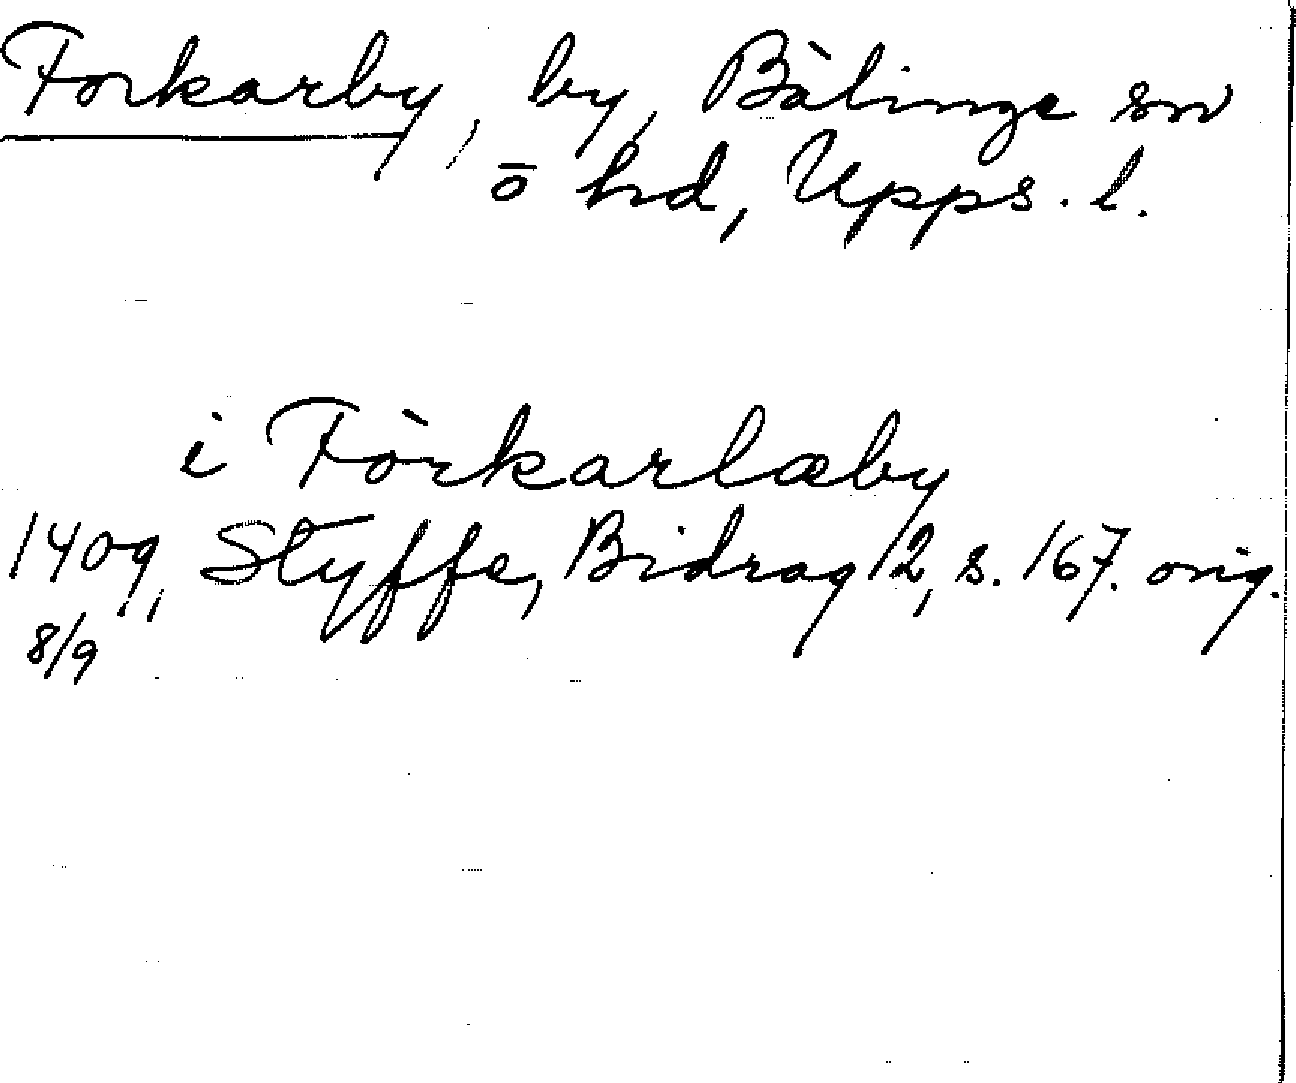 Forkarby, by, Bälinge sn
o hd, Upps. l.
i Förkarlæby
1409, Styffe, Bidrag 2, s. 167. orig.
8/9